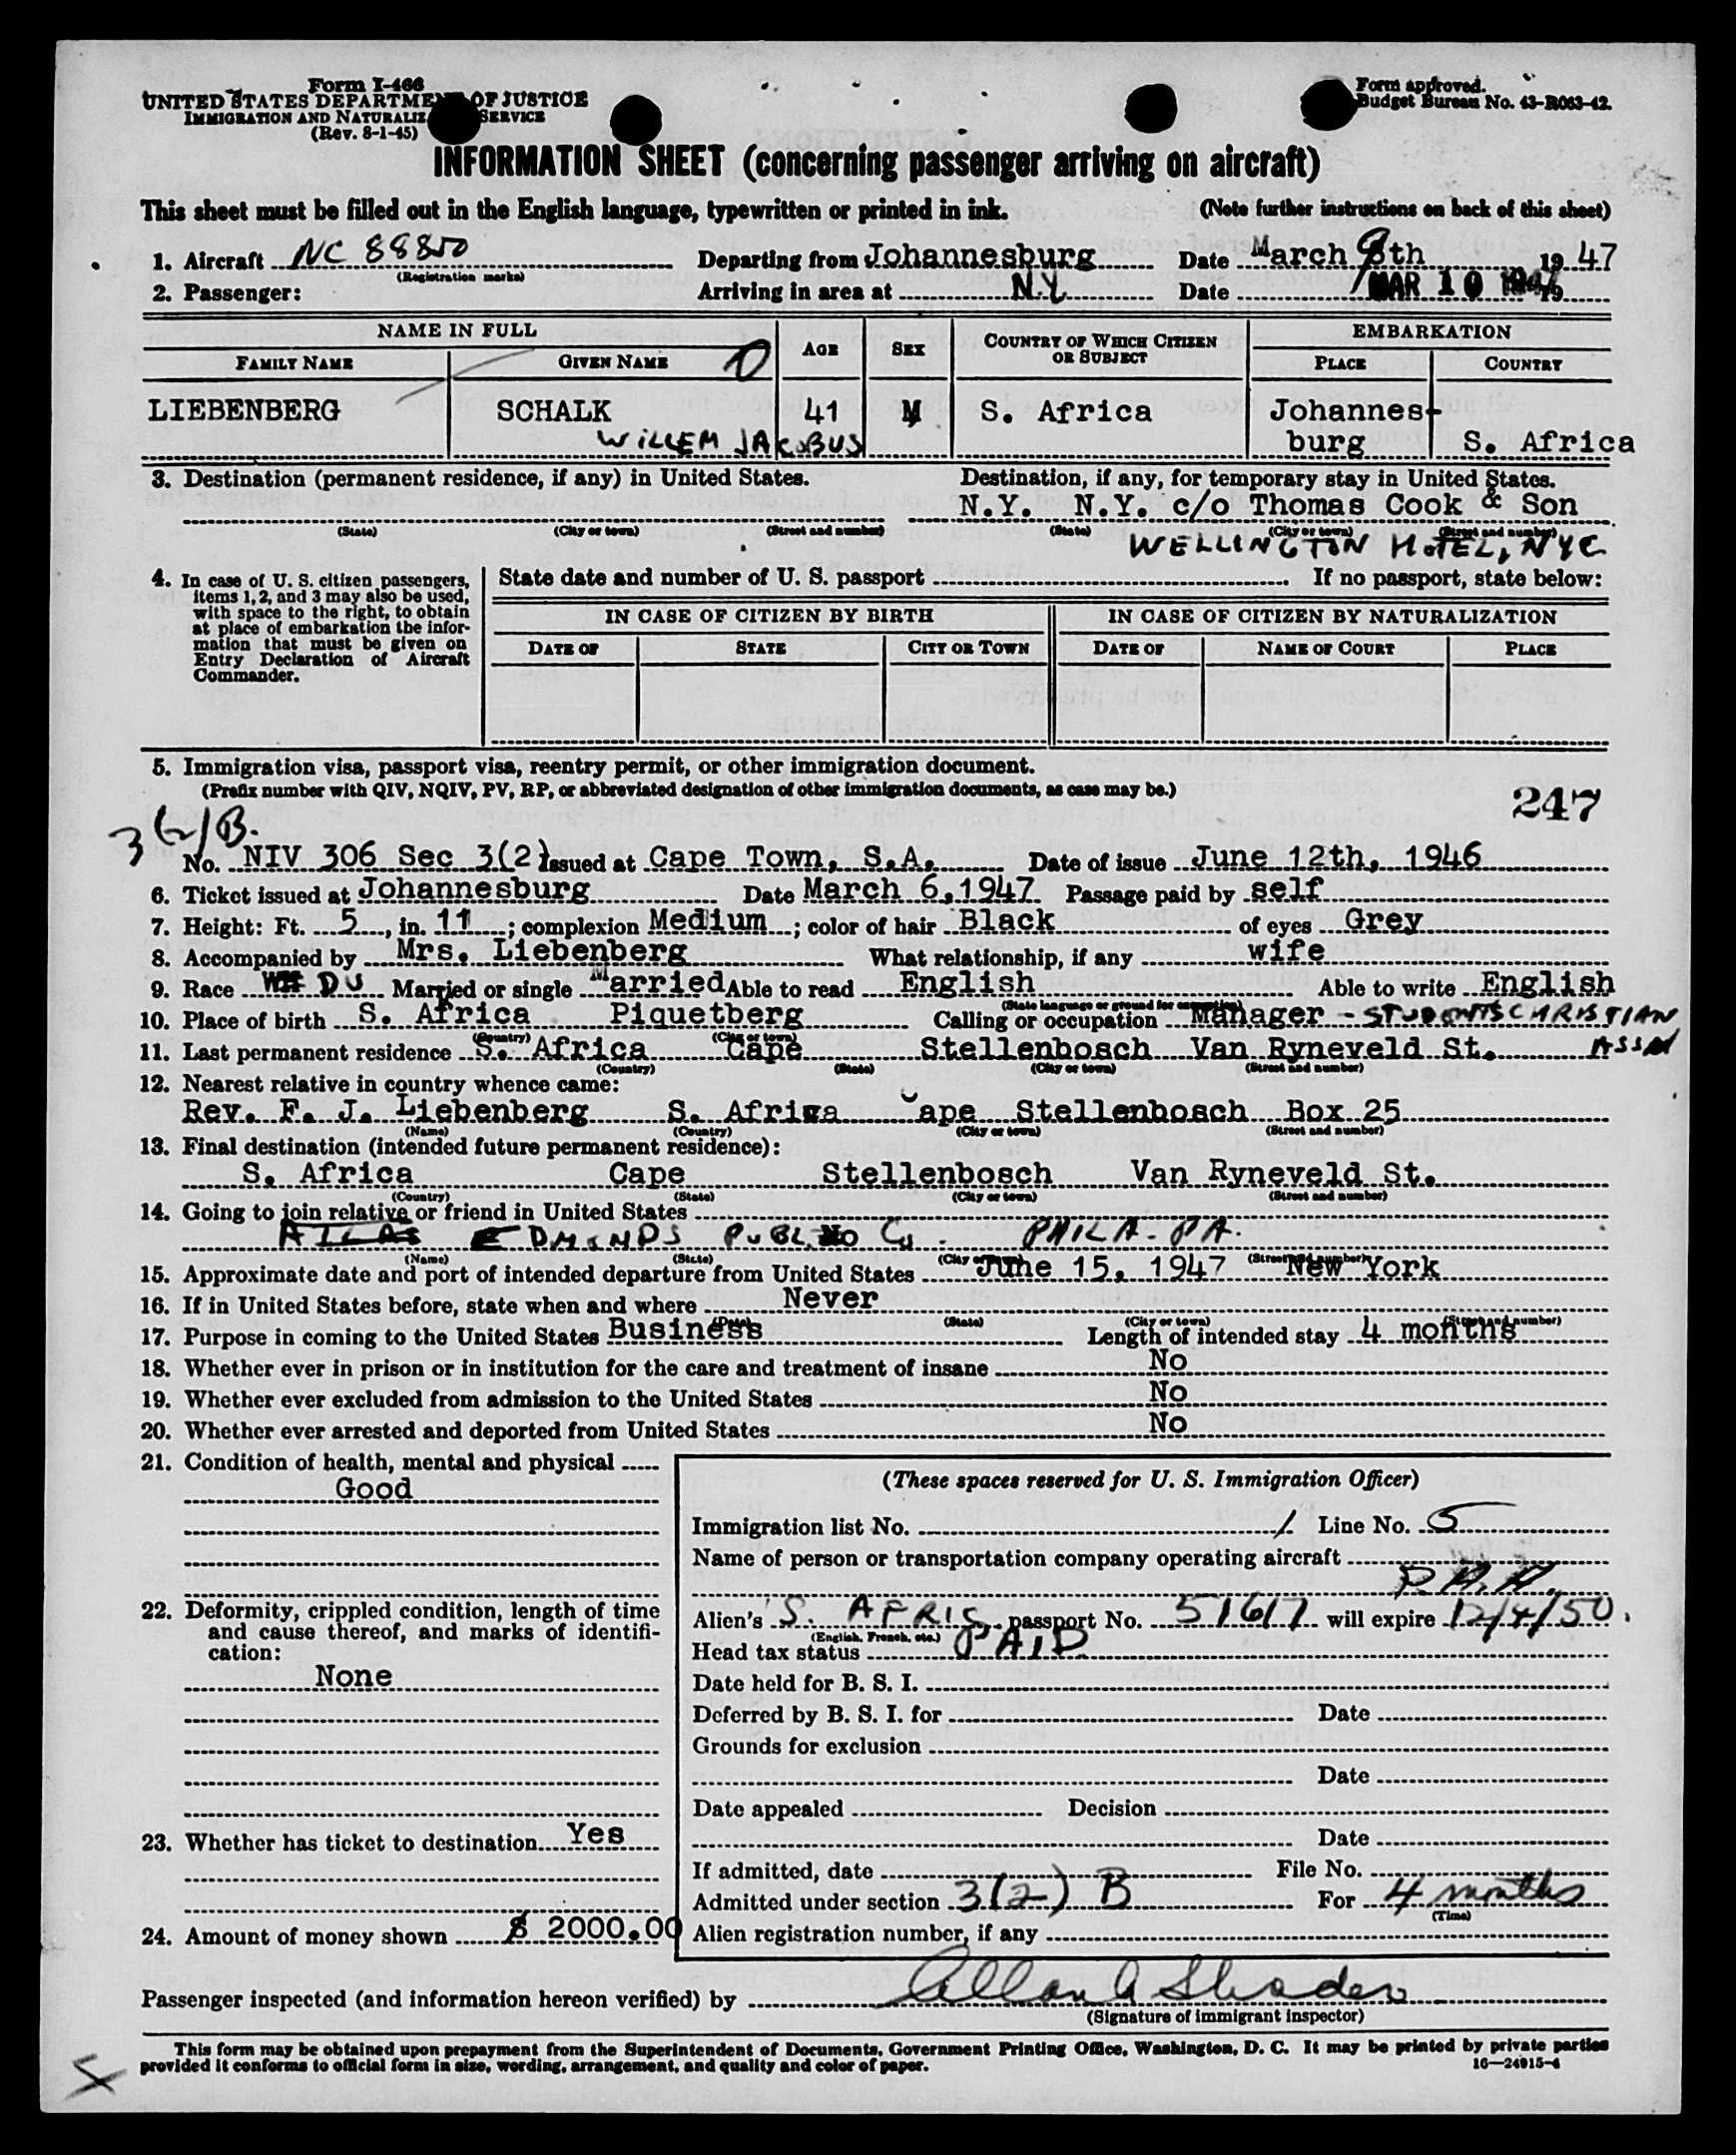 Form I-466
UNITED STATES DEPARTMENT OF JUSTICE
IMMIGRATION AND NATURALIZ SERVICE
(Rev. 8-1-45)
Form approved.
Budget Bureau No. 43-R063-42.
INFORMATION SHEET (concerning passenger arriving on aircraft)
This sheet must be filled out in the English language, typewritten or printed in ink. (Note further instructions on back of this sheet)
1. Aircraft NC 88850 Departing from Johannesburg Date March 9th 1947
(Registration marks)
2. Passenger: Arriving in area at N.Y. Date MAR 10 1947
NAME IN FULL AGE SEX COUNTRY OF WHICH CITIZEN OR SUBJECT EMBARKATION
FAMILY NAME GIVEN NAME PLACE COUNTRY
LIEBENBERG SCHALK 41 M S. Africa Johannes-
WILLEM JACOBUS burg S. Africa
3. Destination (permanent residence, if any) in United States. Destination, if any, for temporary stay in United States.
N.Y. N.Y. c/o Thomas Cook & Son
(State) (City or town) (Street and number) (State) (City or town) (Street and number)
WELLINGTON HOTEL, NYC
4. In case of U. S. citizen passengers, items 1, 2, and 3 may also be used, with space to the right, to obtain at place of embarkation the information that must be given on Entry Declaration of Aircraft Commander.
State date and number of U. S. passport If no passport, state below:
IN CASE OF CITIZEN BY BIRTH IN CASE OF CITIZEN BY NATURALIZATION
DATE OF STATE CITY OR TOWN DATE OF NAME OF COURT PLACE
5. Immigration visa, passport visa, reentry permit, or other immigration document.
(Prefix number with QIV, NQIV, PV, RP, or abbreviated designation of other immigration documents, as case may be.)
247
3(2)B.
No. NIV 306 Sec 3(2) Issued at Cape Town, S.A. Date of issue June 12th, 1946
6. Ticket issued at Johannesburg Date March 6,1947 Passage paid by self
7. Height: Ft. 5, in. 11; complexion Medium; color of hair Black of eyes Grey
8. Accompanied by Mrs. Liebenberg What relationship, if any wife
9. Race DU Married or single Married Able to read English Able to write English
(State language or ground for exemption)
10. Place of birth S. Africa Piquetberg Calling or occupation Manager - STUDENTS CHRISTIAN ASSN
(Country) (City or town)
11. Last permanent residence S. Africa Cape Stellenbosch Van Ryneveld St.
(Country) (State) (City or town) (Street and number)
12. Nearest relative in country whence came:
Rev. F. J. Liebenberg S. Africa Cape Stellenbosch Box 25
(Name) (Country) (City or town) (Street and number)
13. Final destination (intended future permanent residence):
S. Africa Cape Stellenbosch Van Ryneveld St.
(Country) (State) (City or town) (Street and number)
14. Going to join relative or friend in United States
EDMUNDS PHILA. PA.
(Name) (State) (City or town) (Street and number)
15. Approximate date and port of intended departure from United States June 15, 1947 New York
16. If in United States before, state when and where Never
(Date) (State) (City or town) (Street and number)
17. Purpose in coming to the United States Business Length of intended stay 4 months
18. Whether ever in prison or in institution for the care and treatment of insane No
19. Whether ever excluded from admission to the United States No
20. Whether ever arrested and deported from United States No
21. Condition of health, mental and physical
Good
22. Deformity, crippled condition, length of time and cause thereof, and marks of identification:
None
23. Whether has ticket to destination Yes
24. Amount of money shown $ 2000.00
(These spaces reserved for U. S. Immigration Officer)
Immigration list No. 1 Line No. 5
Name of person or transportation company operating aircraft
P.A.A.
Alien's S. AFRIC. passport No. 51617 will expire 12/4/50.
(English, French, etc.)
Head tax status PAID
Date held for B. S. I.
Deferred by B. S. I. for Date
Grounds for exclusion
Date
Date appealed Decision
Date
If admitted, date File No.
Admitted under section 3(2) B For 4 months
(Time)
Alien registration number, if any
Passenger inspected (and information hereon verified) by Allan A Shader
(Signature of immigrant inspector)
This form may be obtained upon prepayment from the Superintendent of Documents, Government Printing Office, Washington, D. C. It may be printed by private parties
provided it conforms to official form in size, wording, arrangement, and quality and color of paper. 16—24915-4